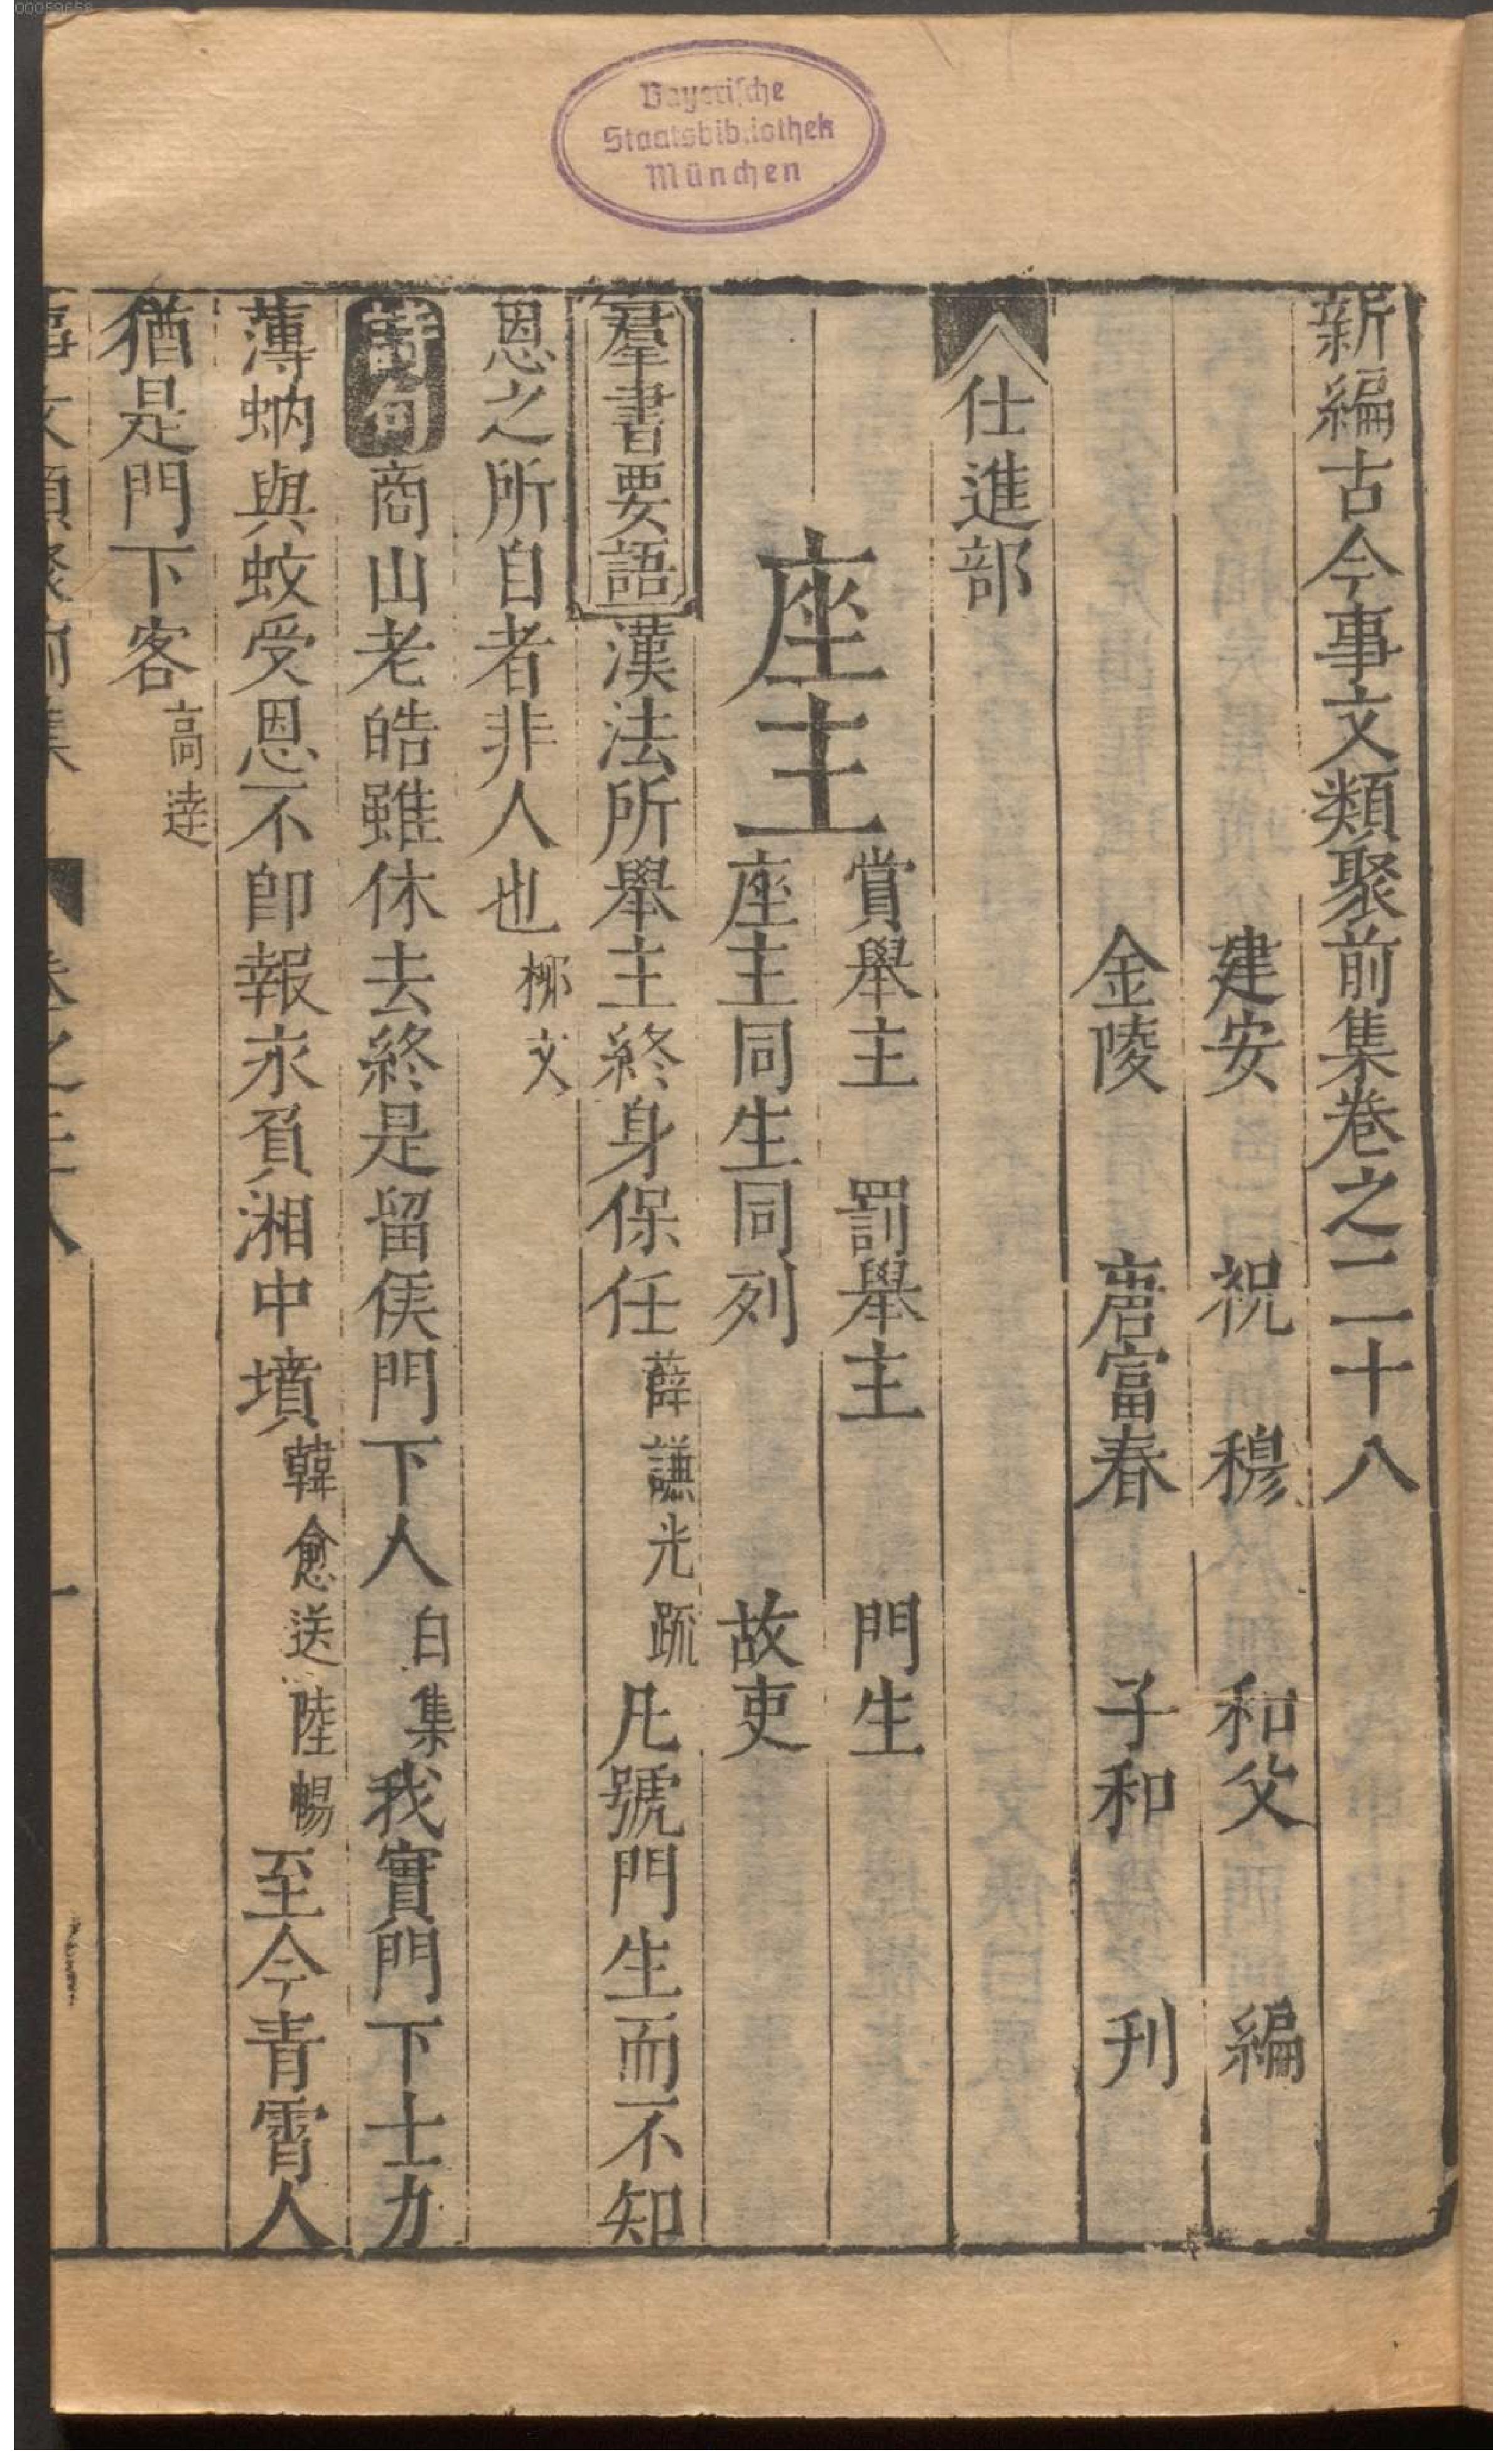 00059658
Bayerische
Staatsbibliothek
München
新編古今事文類聚前集卷之二十八
建安 祝 穆 和父 編
金陵 唐富春 子和 刋
仕進部
座主 賞舉主 罰舉主 門生
座主同生同列 故吏
羣書要語 漢法所舉主終身保任 薛謙光䟽 凡號門生而不知
恩之所自者非人也 栁文
詩句 商山老皓雖休去終是留侯門下人 白集 我實門下士力
薄蚋與蚊受恩不即報永負湘中墳 韓愈送陸暢 至今青霄人
猶是門下客 高逵
事文類聚前集 卷之二十八 一